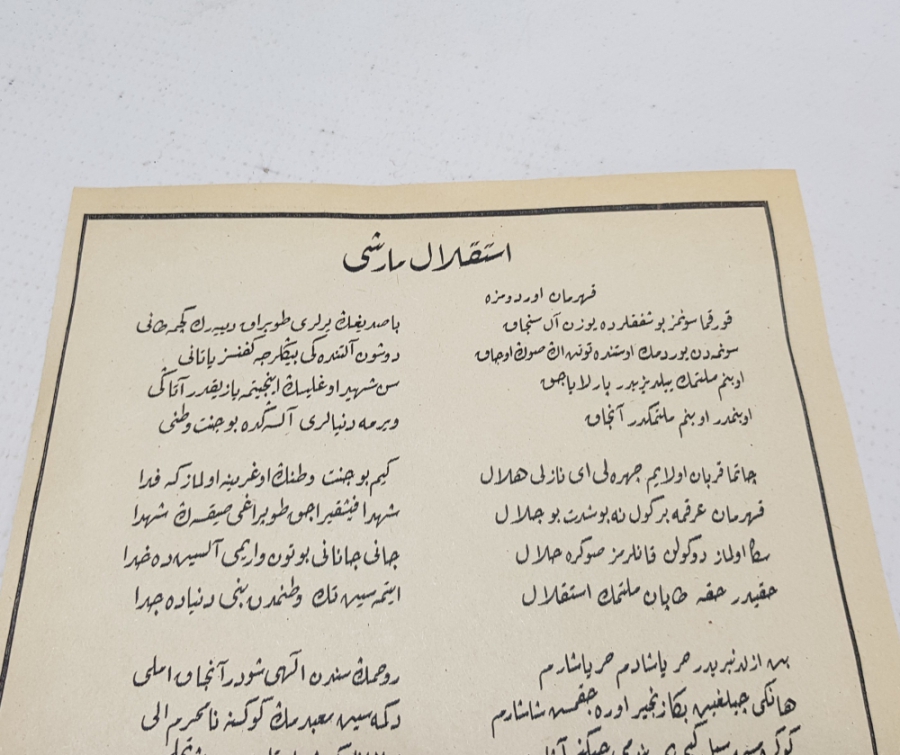 استقلال مارشی
قهرمان اوردومزه
قورقما سونمز بو شفقلرده یوزن آل سنجاق
سونمەدن یوردمك اوستنده توتن اڭ صوڭ اوجاق
او بنم ملتمك ییلدیزیدر پارلایاجق
او بنمدر او بنم ملتمكدر آنجاق
چاتما قربان اولایم چهره‌ڭی ای نازلی هلال
قهرمان عرقمه بر كول نه بو شدت بو جلال
سڭا اولماز دوكولن قانلرمز صوڭره حلال
حقیدر حقه طاپان ملتمك استقلال
بن ازلدنبریدر حر یاشادم حر یاشارم
هانكی چیلغین بڭا زنجیر اوره‌جقمش شاشارم
باصدیغڭ یرلری طوپراق دییه‌رك كچمه طانی
دوشون آلتنده‌كی بیڭلرجه كفنسز یاتانی
سن شهید اوغلیسڭ اینجیتمه یازیقدر آتاڭی
ویرمه دنیالری آلسه‌ڭده بو جنت وطنی
كیم بو جنت وطنڭ اوغرینه اولماز كه فدا
شهدا فیشقیراجق طوپراغی صیقسه‌ڭ شهدا
جانی جانانی بوتون واریمی آلسین ده خدا
ایتمه‌سین تك وطنمدن بنی دنیاده جدا
روحمڭ سندن الهی شودر آنجاق املی
دكمه‌سین معبدمڭ كوكسنه نامحرم الی